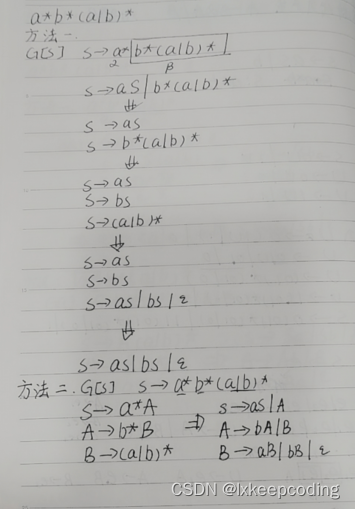 a*b*(a|b)*
方法一.
G[S] S→a*b*(a|b)*
2 β
S→aS|b*(a|b)*
⇓
S→as
S→b*(a|b)*
⇓
S→as
S→bs
S→(a|b)*
⇓
S→as
S→bs
S→as|bs|ε
⇓
S→as|bs|ε
方法二. G[S] S→a*b*(a|b)*
S→a*A ⇒ S→as|A
A→b*B A→bA|B
B→(a|b)* B→aB|bB|ε
CSDN @lxkeepcoding